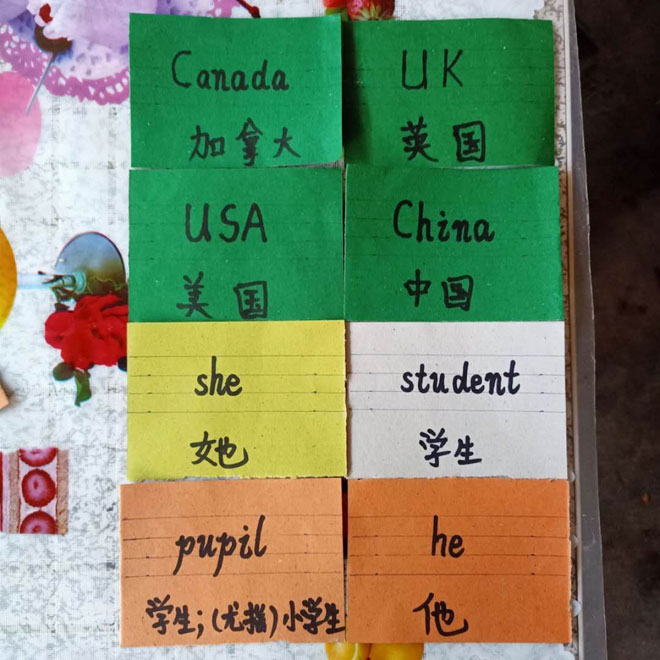 Canada
加拿大
UK
英国
USA
美国
China
中国
she
她
student
学生
pupil
学生;(尤指)小学生
he
他